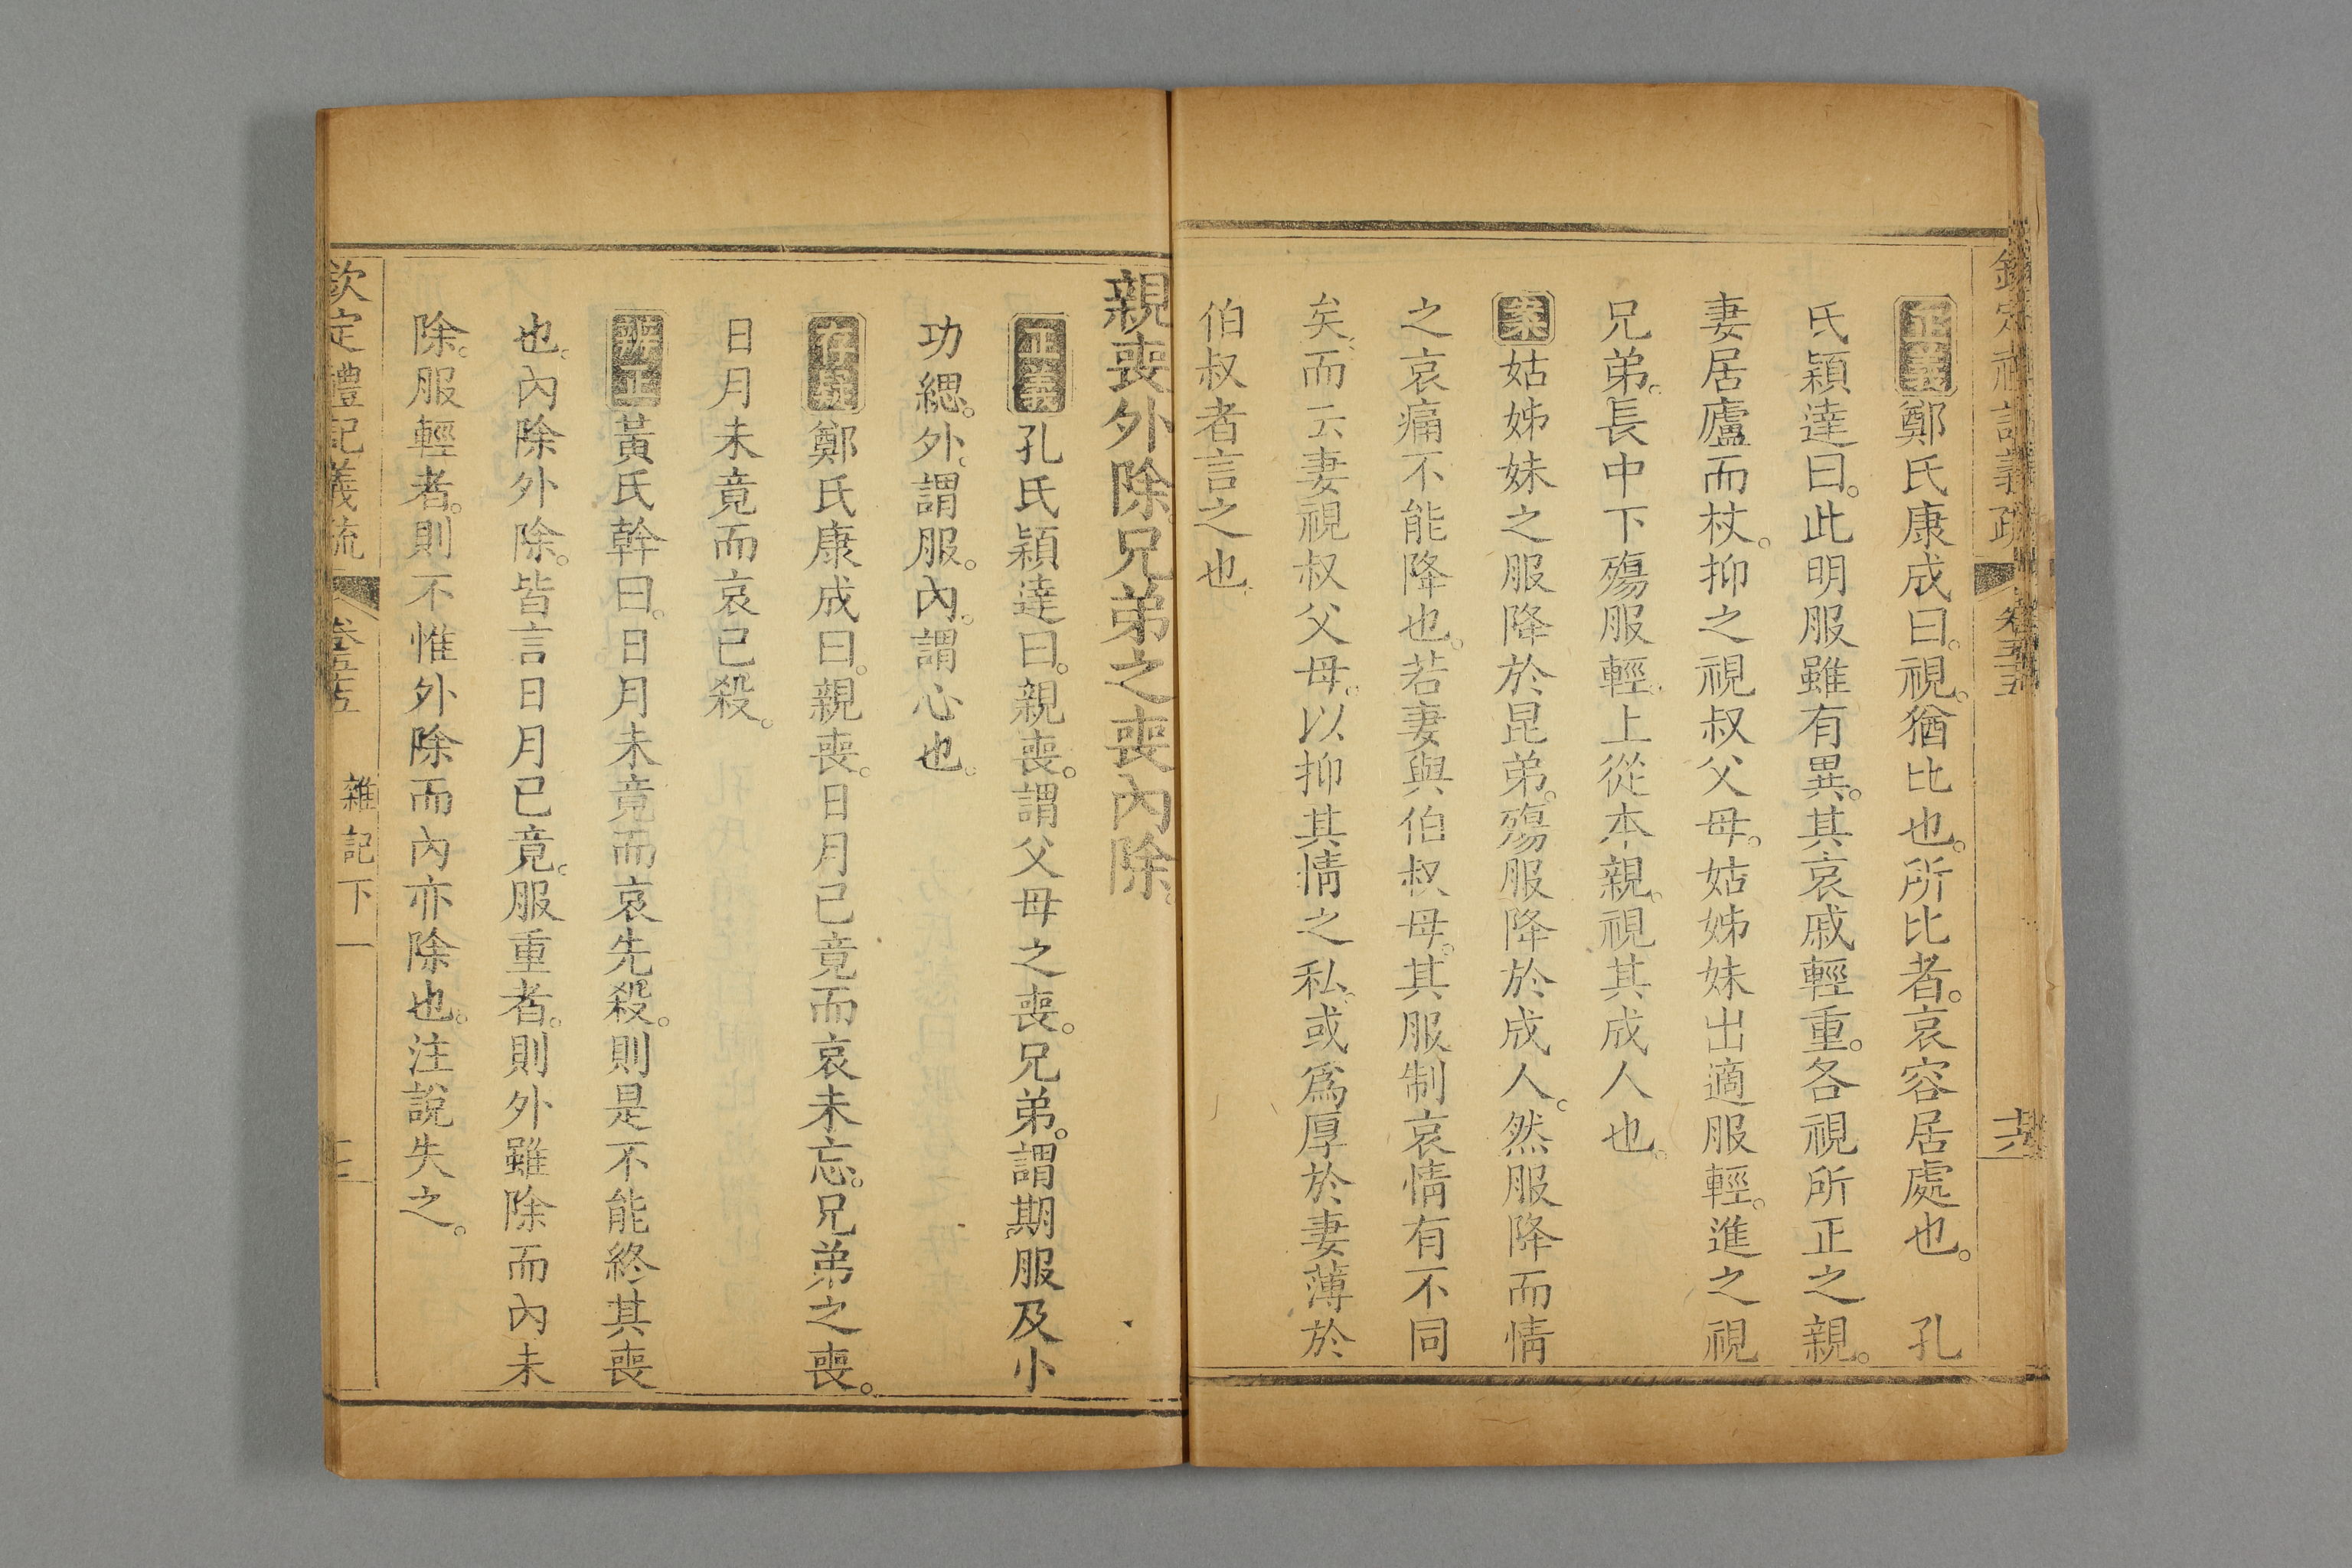 欽定禮記義疏 卷五十五 十六
正義鄭氏康成曰。視。猶比也。所比者。哀容居處也。 孔
氏穎達曰。此明服雖有異。其哀戚輕重。各視所正之親。
妻居廬而杖。抑之視叔父母。姑姊妹出適服輕。進之視
兄弟。長中下殤服輕。上從本親。視其成人也。
案姑姊妹之服降於昆弟。殤服降於成人。然服降而情
之哀痛不能降也。若妻與伯叔母。其服制哀情有不同
矣。而云妻視叔父母。以抑其情之私。或爲厚於妻薄於
伯叔者言之也。
親喪外除。兄弟之喪內除。
正義孔氏穎達曰。親喪。謂父母之喪。兄弟。謂期服及小
功緦。外。謂服。內。謂心也。
存疑鄭氏康成曰。親喪。日月已竟而哀未忘。兄弟之喪。
日月未竟而哀已殺。
辨正黃氏榦曰。日月未竟而哀先殺。則是不能終其喪
也。內除外除。皆言日月已竟。服重者。則外雖除而內未
除。服輕者。則不惟外除而內亦除也。注說失之。
欽定禮記義疏 卷五十五 雜記下一 十七